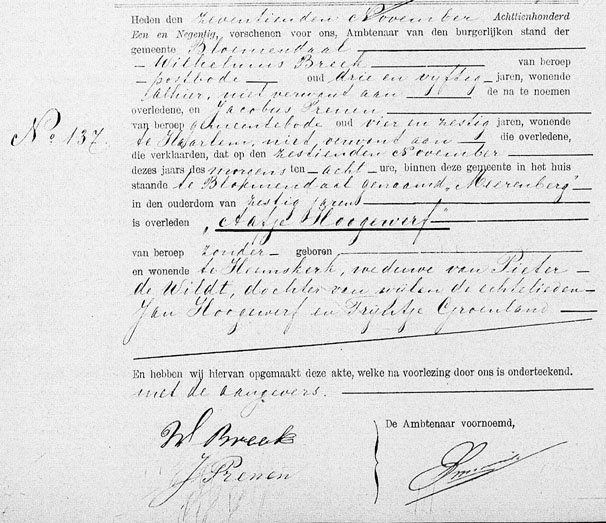 Heden den zeventienden November Achttienhonderd
Een en Negentig, verschenen voor ons, Ambtenaar van den burgerlijken stand der
gemeente Bloemendaal
Wilhelmus Breek van beroep
postbode oud drie en vyftig jaren, wonende
alhier, niet verwand aan de na te noemen
overledene, en Jacobus Prenen
van beroep gemeentebode oud vier en zestig jaren, wonende
No 137.
te Haarlem, niet verwand aan die overledene,
die verklaarden, dat op den zestienden November
dezes jaars des morgens ten acht ure, binnen deze gemeente in het huis
staande te Bloemendaal genaamd „Meerenberg"
in den ouderdom van zestig jaren
is overleden „Aafje Hoogewerf"
van beroep zonder geboren
en wonende te Heemskerk, weduwe van Pieter
de Wildt, dochter van wijlen de echtelieden
Jan Hoogewerf en Trijntje Groenland
En hebben wij hiervan opgemaakt deze akte, welke na voorlezing door ons is onderteekend.
met de aangevers.
De Ambtenaar voornoemd,
W Breek
J Prenen